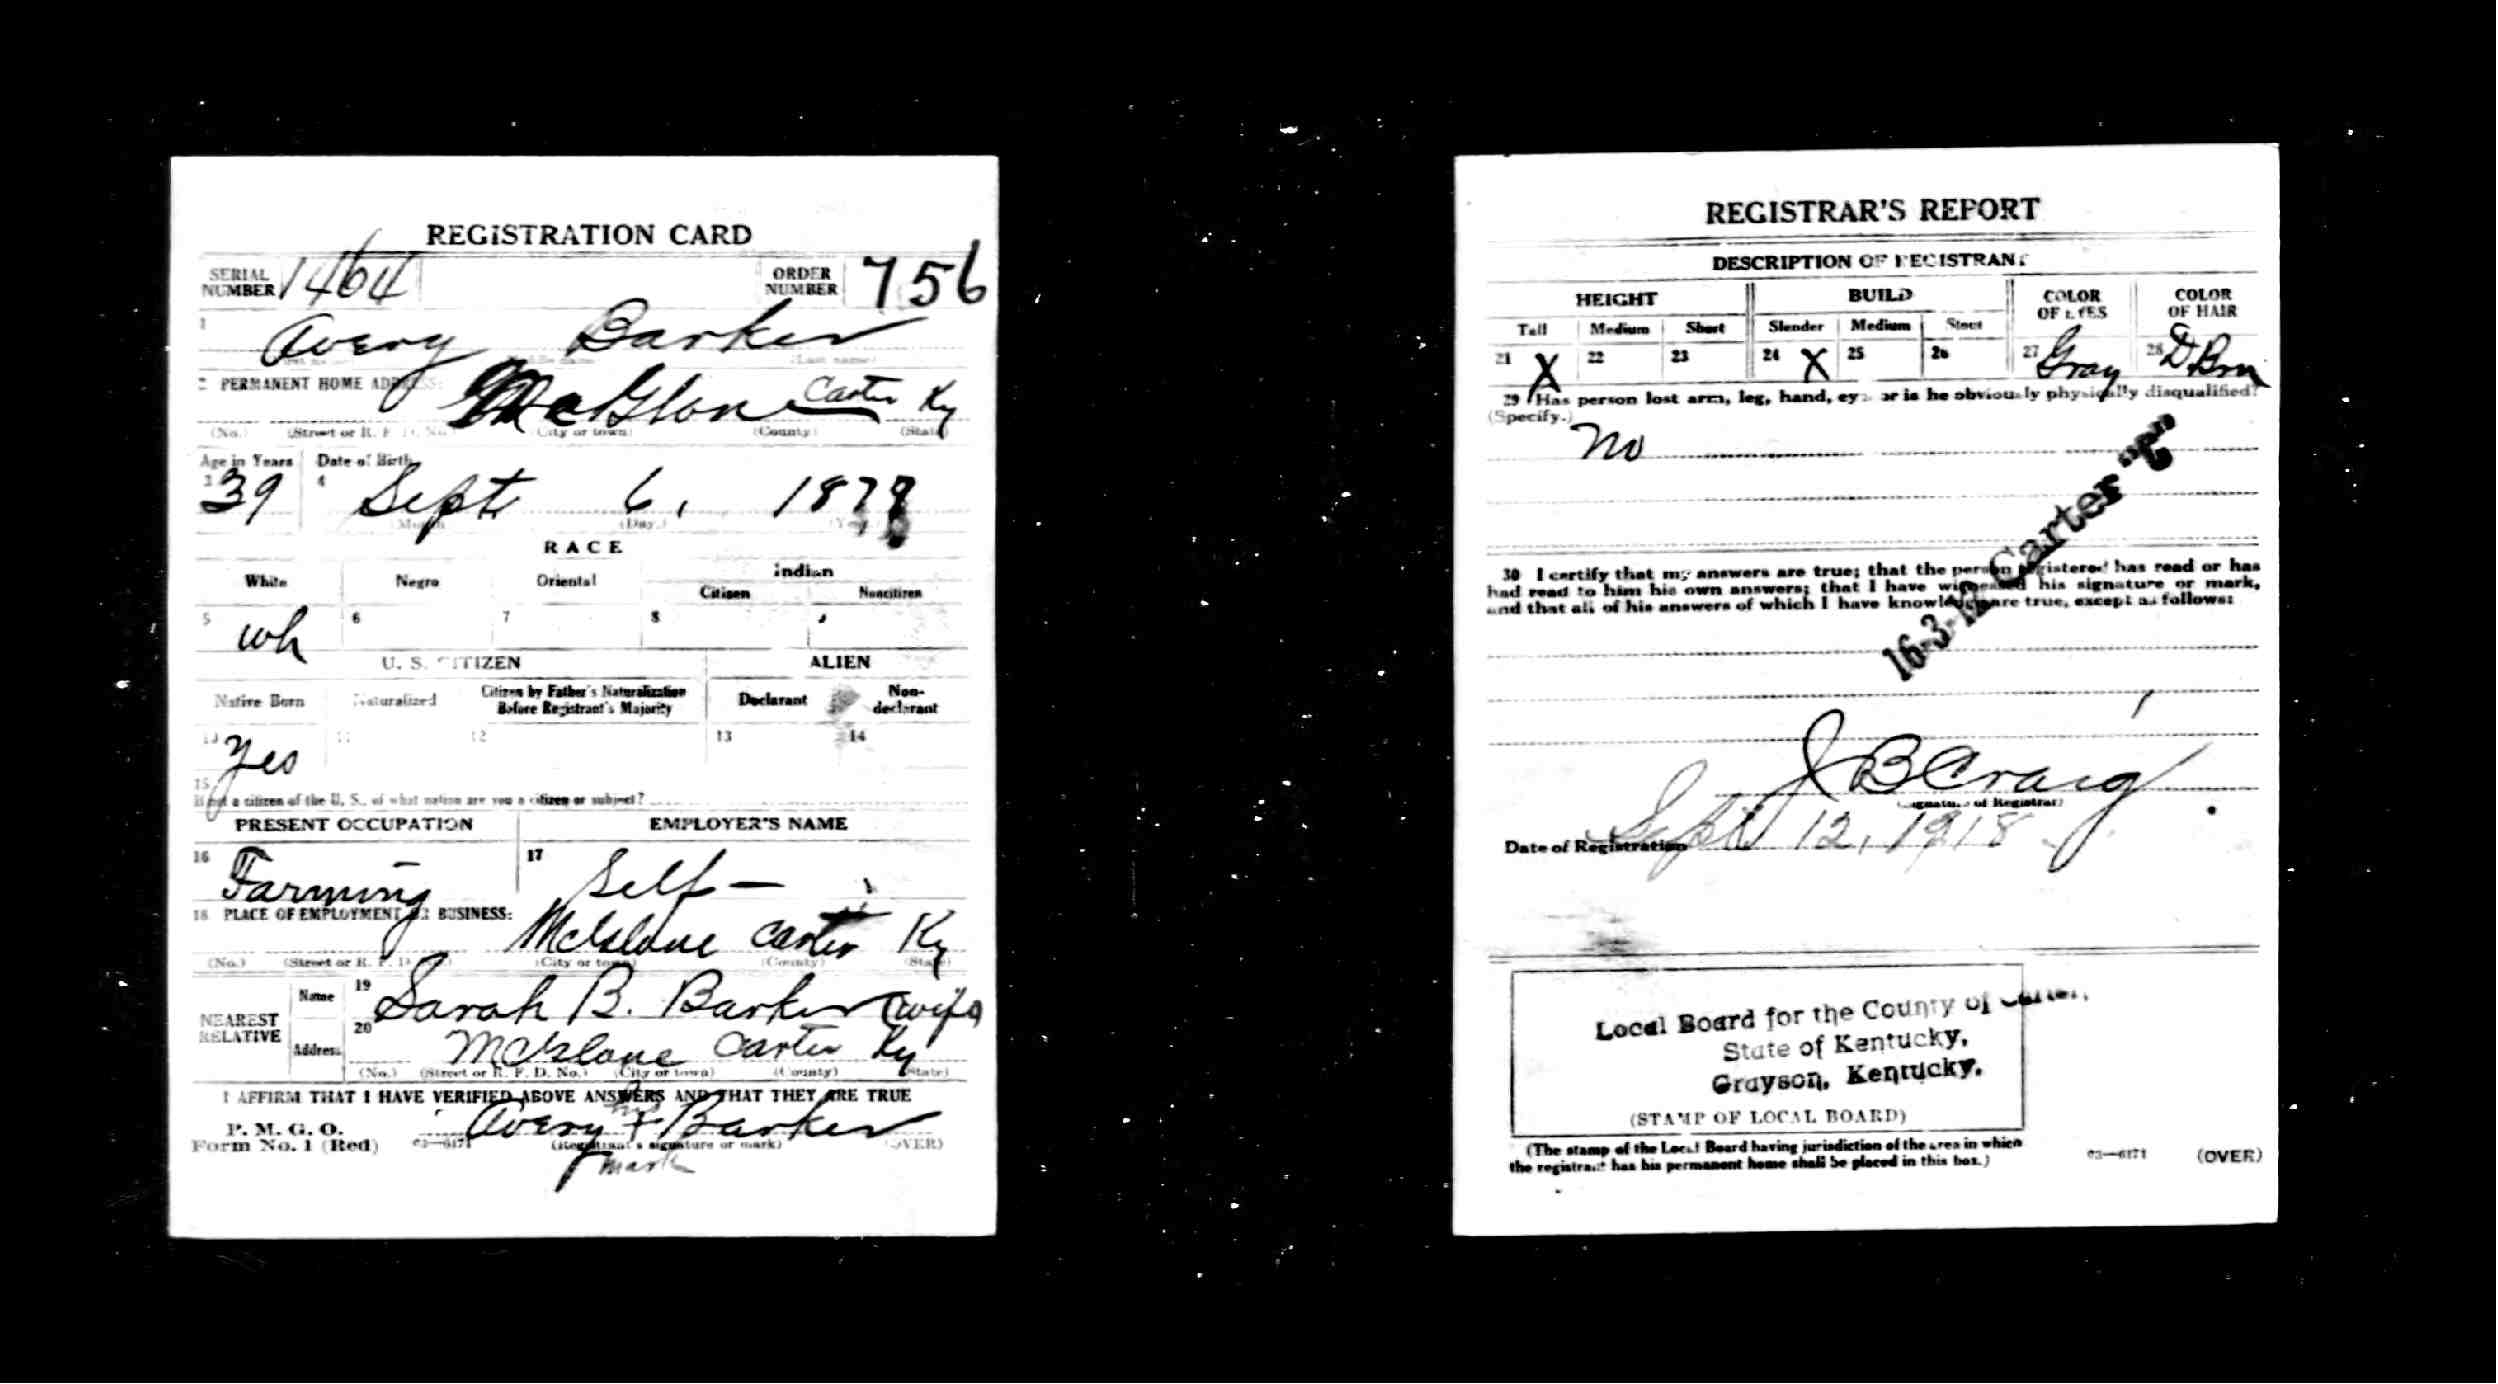 REGISTRATION CARD
SERIAL NUMBER 1464 ORDER NUMBER 756
1 Avery Barker
(Last name)
2 PERMANENT HOME ADDRESS: McGlone Carter Ky
(No.) (Street or R. F. D. No.) (City or town) (County) (State)
Age in Years Date of Birth
3 39 4 Sept 6, 1878
(Month) (Day.) (Year.)
RACE
White Negro Oriental Indian
Citizen Noncitizen
5 wh 6 7 8 9
U. S. CITIZEN ALIEN
Native Born Naturalized Citizen by Father's Naturalization Before Registrant's Majority Declarant Non-declarant
10 Yes 11 12 13 14
15
If not a citizen of the U. S., of what nation are you a citizen or subject?
PRESENT OCCUPATION EMPLOYER'S NAME
16 Farming 17 Self —
18 PLACE OF EMPLOYMENT OR BUSINESS:
McGlone Carter Ky
(No.) (Street or R. F. D. No.) (City or town) (County) (State)
NEAREST RELATIVE Name 19 Sarah B. Barker (wife)
Address 20 McGlone Carter Ky
(No.) (Street or R. F. D. No.) (City or town) (County) (State)
I AFFIRM THAT I HAVE VERIFIED ABOVE ANSWERS AND THAT THEY ARE TRUE
P. M. G. O.
Form No. 1 (Red) 03—6171 Avery his x mark Barker
(Registrant's signature or mark) (OVER)
REGISTRAR'S REPORT
DESCRIPTION OF REGISTRANT
HEIGHT BUILD COLOR OF EYES COLOR OF HAIR
Tall Medium Short Slender Medium Stout
21 X 22 23 24 X 25 26 27 Gray 28 D Brn
29 Has person lost arm, leg, hand, eye, or is he obviously physically disqualified?
(Specify.)
No
16-3-12 Carter "C"
30 I certify that my answers are true; that the person registered has read or has
had read to him his own answers; that I have witnessed his signature or mark,
and that all of his answers of which I have knowledge are true, except as follows:
J B Craig
(Signature of Registrar)
Date of Registration Sept 12, 1918
Local Board for the County of Carter,
State of Kentucky,
Grayson, Kentucky.
(STAMP OF LOCAL BOARD)
(The stamp of the Local Board having jurisdiction of the area in which
the registrant has his permanent home shall be placed in this box.)
03—6171 (OVER)